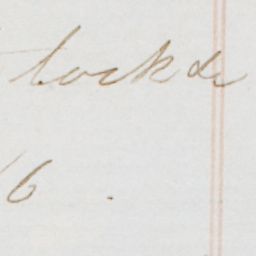 lock &c
6 .